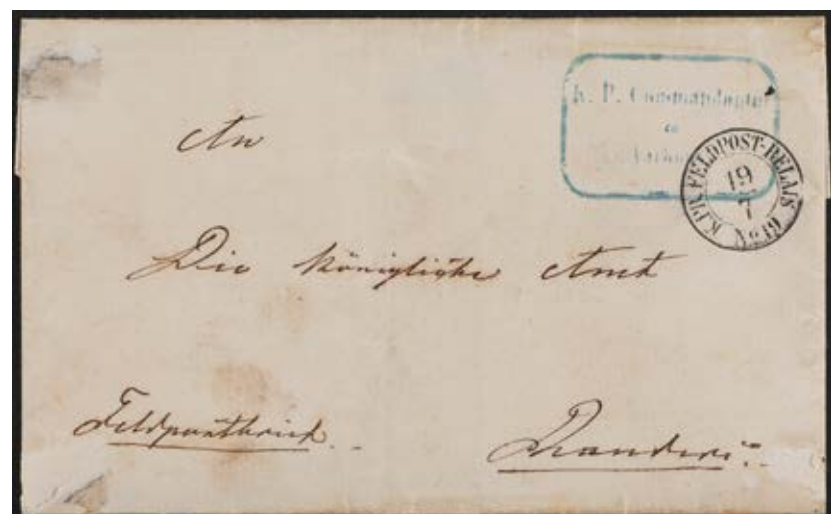 K. P. Commandantur
K. PR. FELDPOST-RELAIS
19
7
No 19
An
Die königliche Amt
Feldpostbrief.